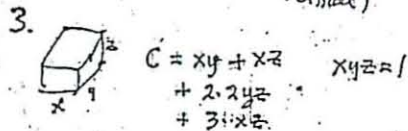 3.
z
y
x
C = xy + xz
+ 2·2yz
+ 3·xz
xyz=1